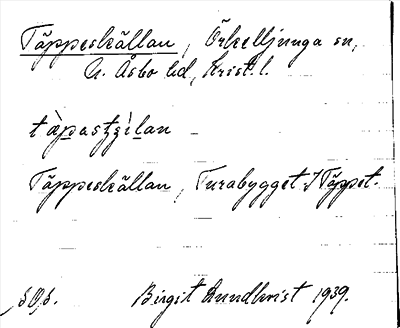 Täppeskällan, Örkelljunga sn,
N. Åsbo hd, Krist. l.
tä̀pastʃɛ̀lan
Täppeskällan, Turabygget I Täppet.
Birgit Lundkvist 1939.